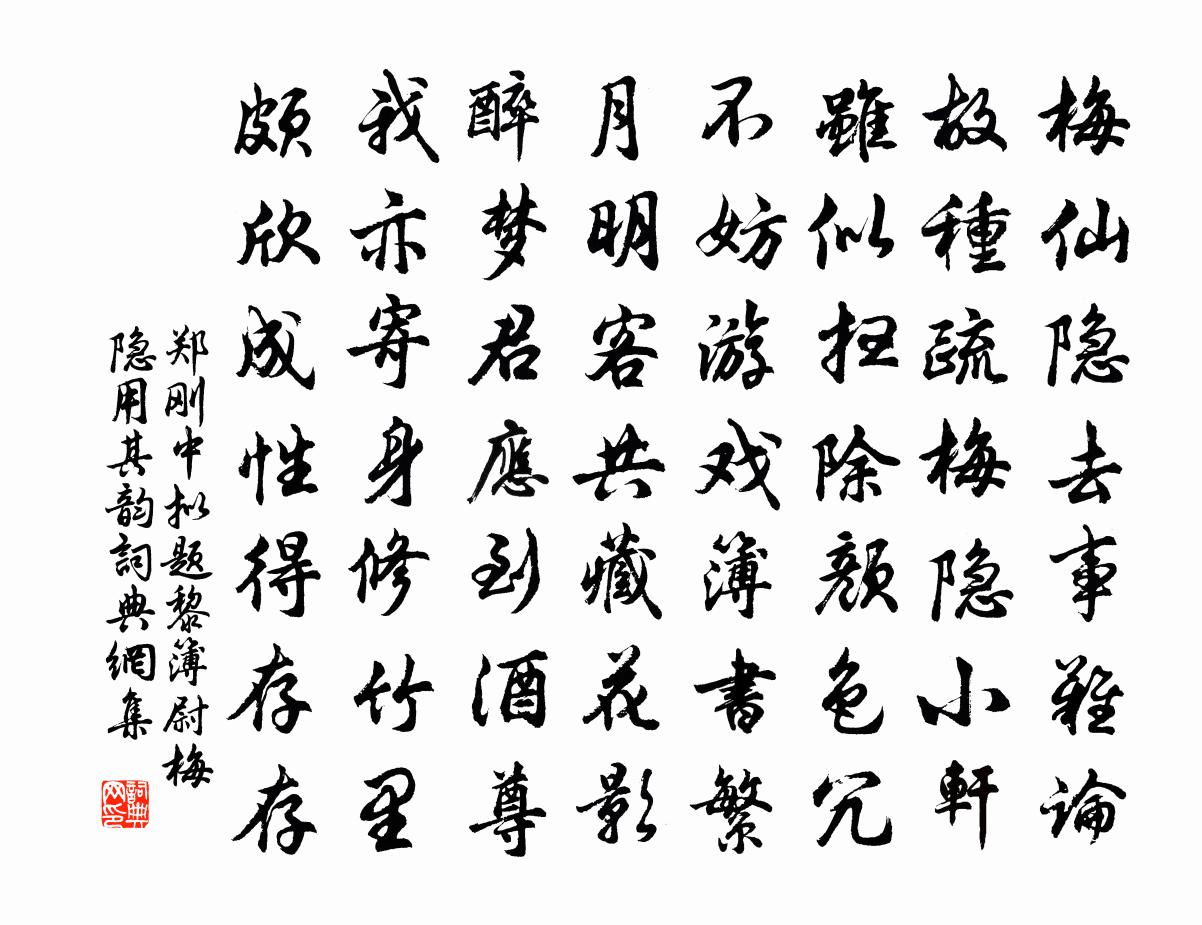 梅仙隐去事難論
故種疏梅隐小軒
雖似扫除顔色冗
不妨游戏簿書繁
月明客共藏花影
醉梦君應到酒尊
我亦寄身修竹里
颇欣成性得存存
郑刚中拟题黎簿尉梅
隐用其韵詞典網集
詞典
网印